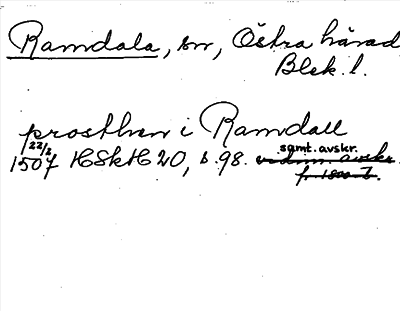 Ramdala, sn, Östra härad
Blek. l.
prosthen i Ramdall
22/2 samt. avskr.
1507 HSkH 20, s. 98. vidim. avskr.
fr. 1800-t.